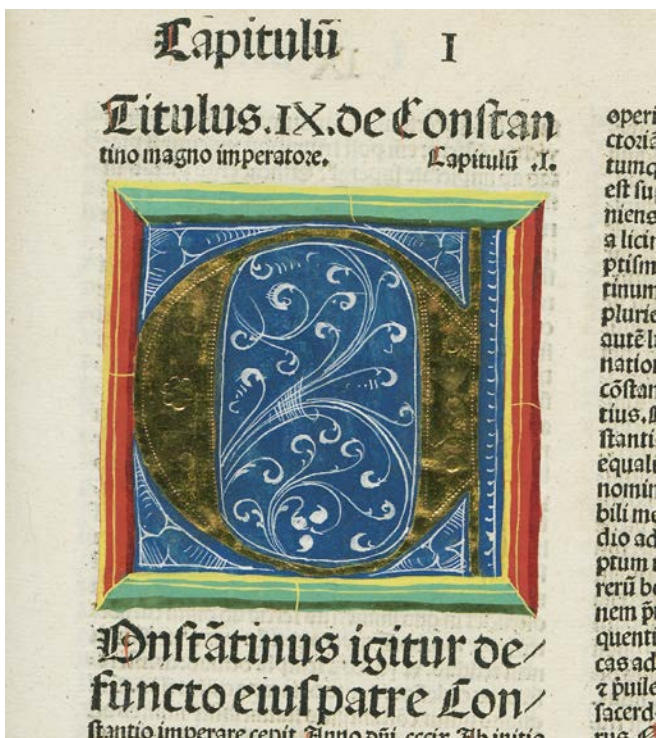 Capitulū I
Titulus.IX.de Conſtan
tino magno imperatore. Capitulū .I.
C
Onſtātinus igitur de/
functo eiuſ patre Con/
ſtantio imperare cepit. Anno dñi. cccix. Ab initio
operi
ctoriā
tumq
eſt ſu
niens
a licin
ptiſm
tinum
plurie
autē l
nation
cōſtan
tius.
ſtanti
equali
nomin
bili me
dio ad
ptum
rerū b
nem
quenti
cas ad
ſacerd
rus.